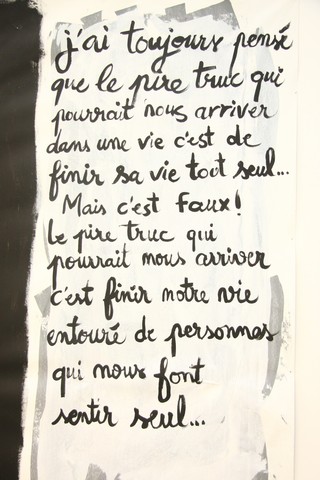 j'ai toujours pensé
que le pire truc qui
pourrait nous arriver
dans une vie c'est de
finir sa vie tout seul...
Mais c'est faux!
Le pire truc qui
pourrait nous arriver
c'est finir notre vie
entouré de personnas
qui nous font
sentir seul...